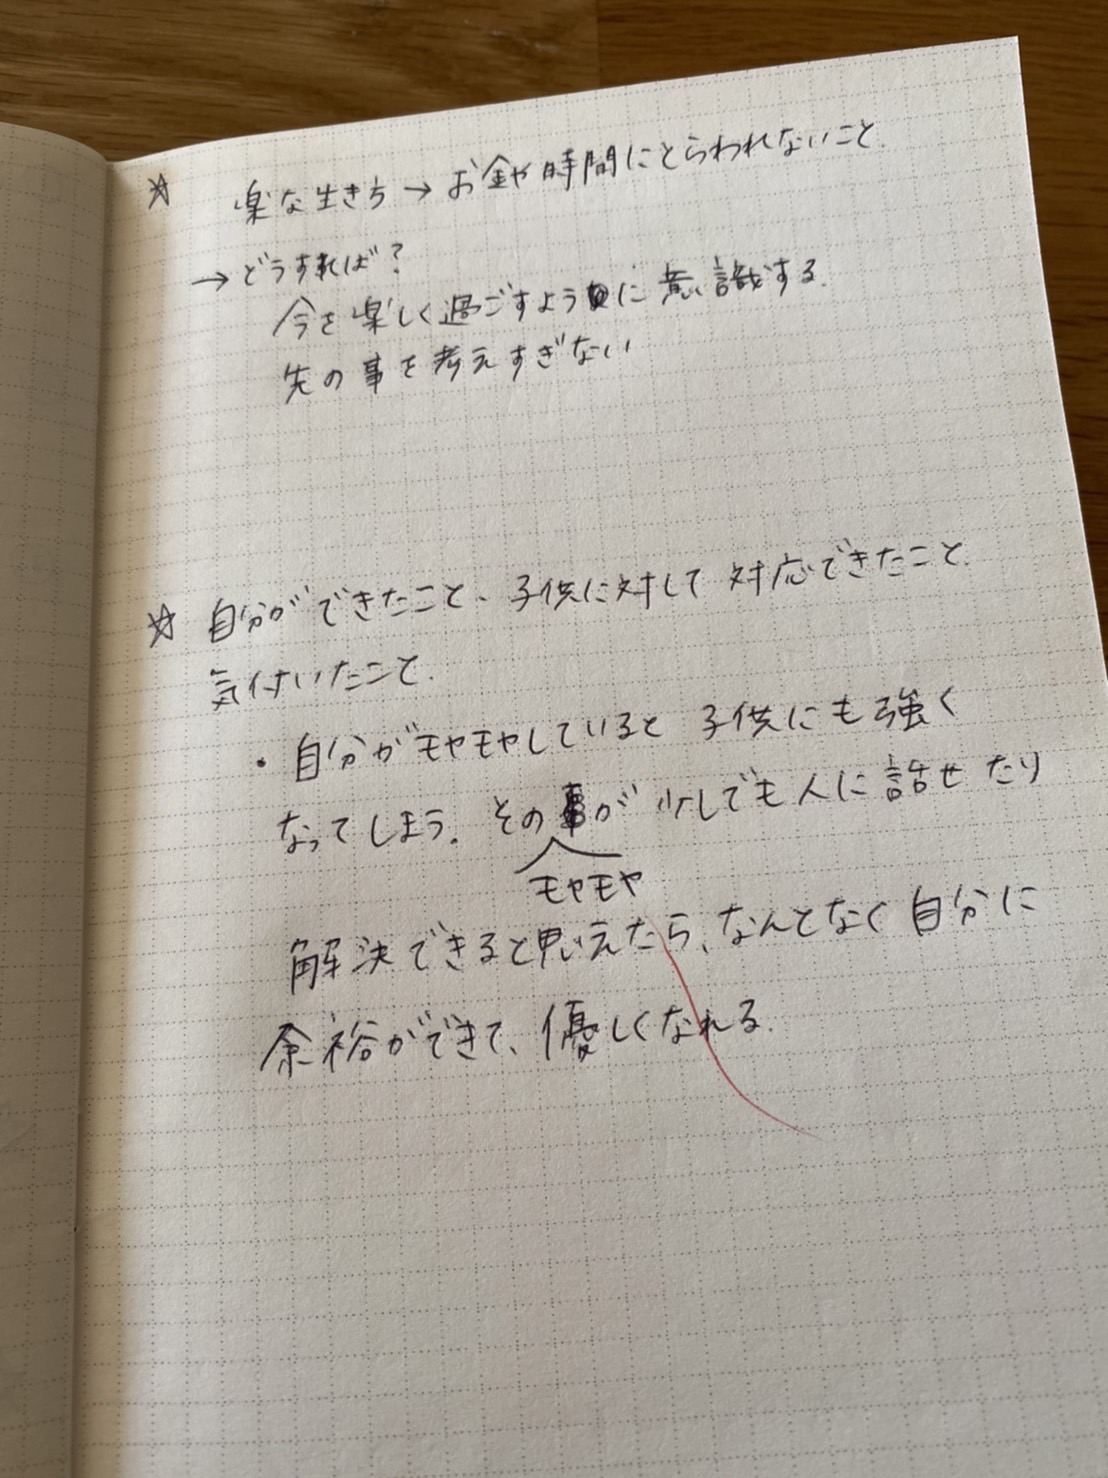 ☆ 楽な生き方 → お金や時間にとらわれないこと.
→ どうすれば?
今を楽しく過ごすように意識する.
先の事を考えすぎない
☆ 自分ができたこと、子供に対して対応できたこと.
気付いたこと.
・自分がモヤモヤしていると子供にも強く
なってしまう. その事が少しでも人に話せたり
モヤモヤ
解決できると思えたら、なんとなく自分に
余裕ができて、優しくなれる.